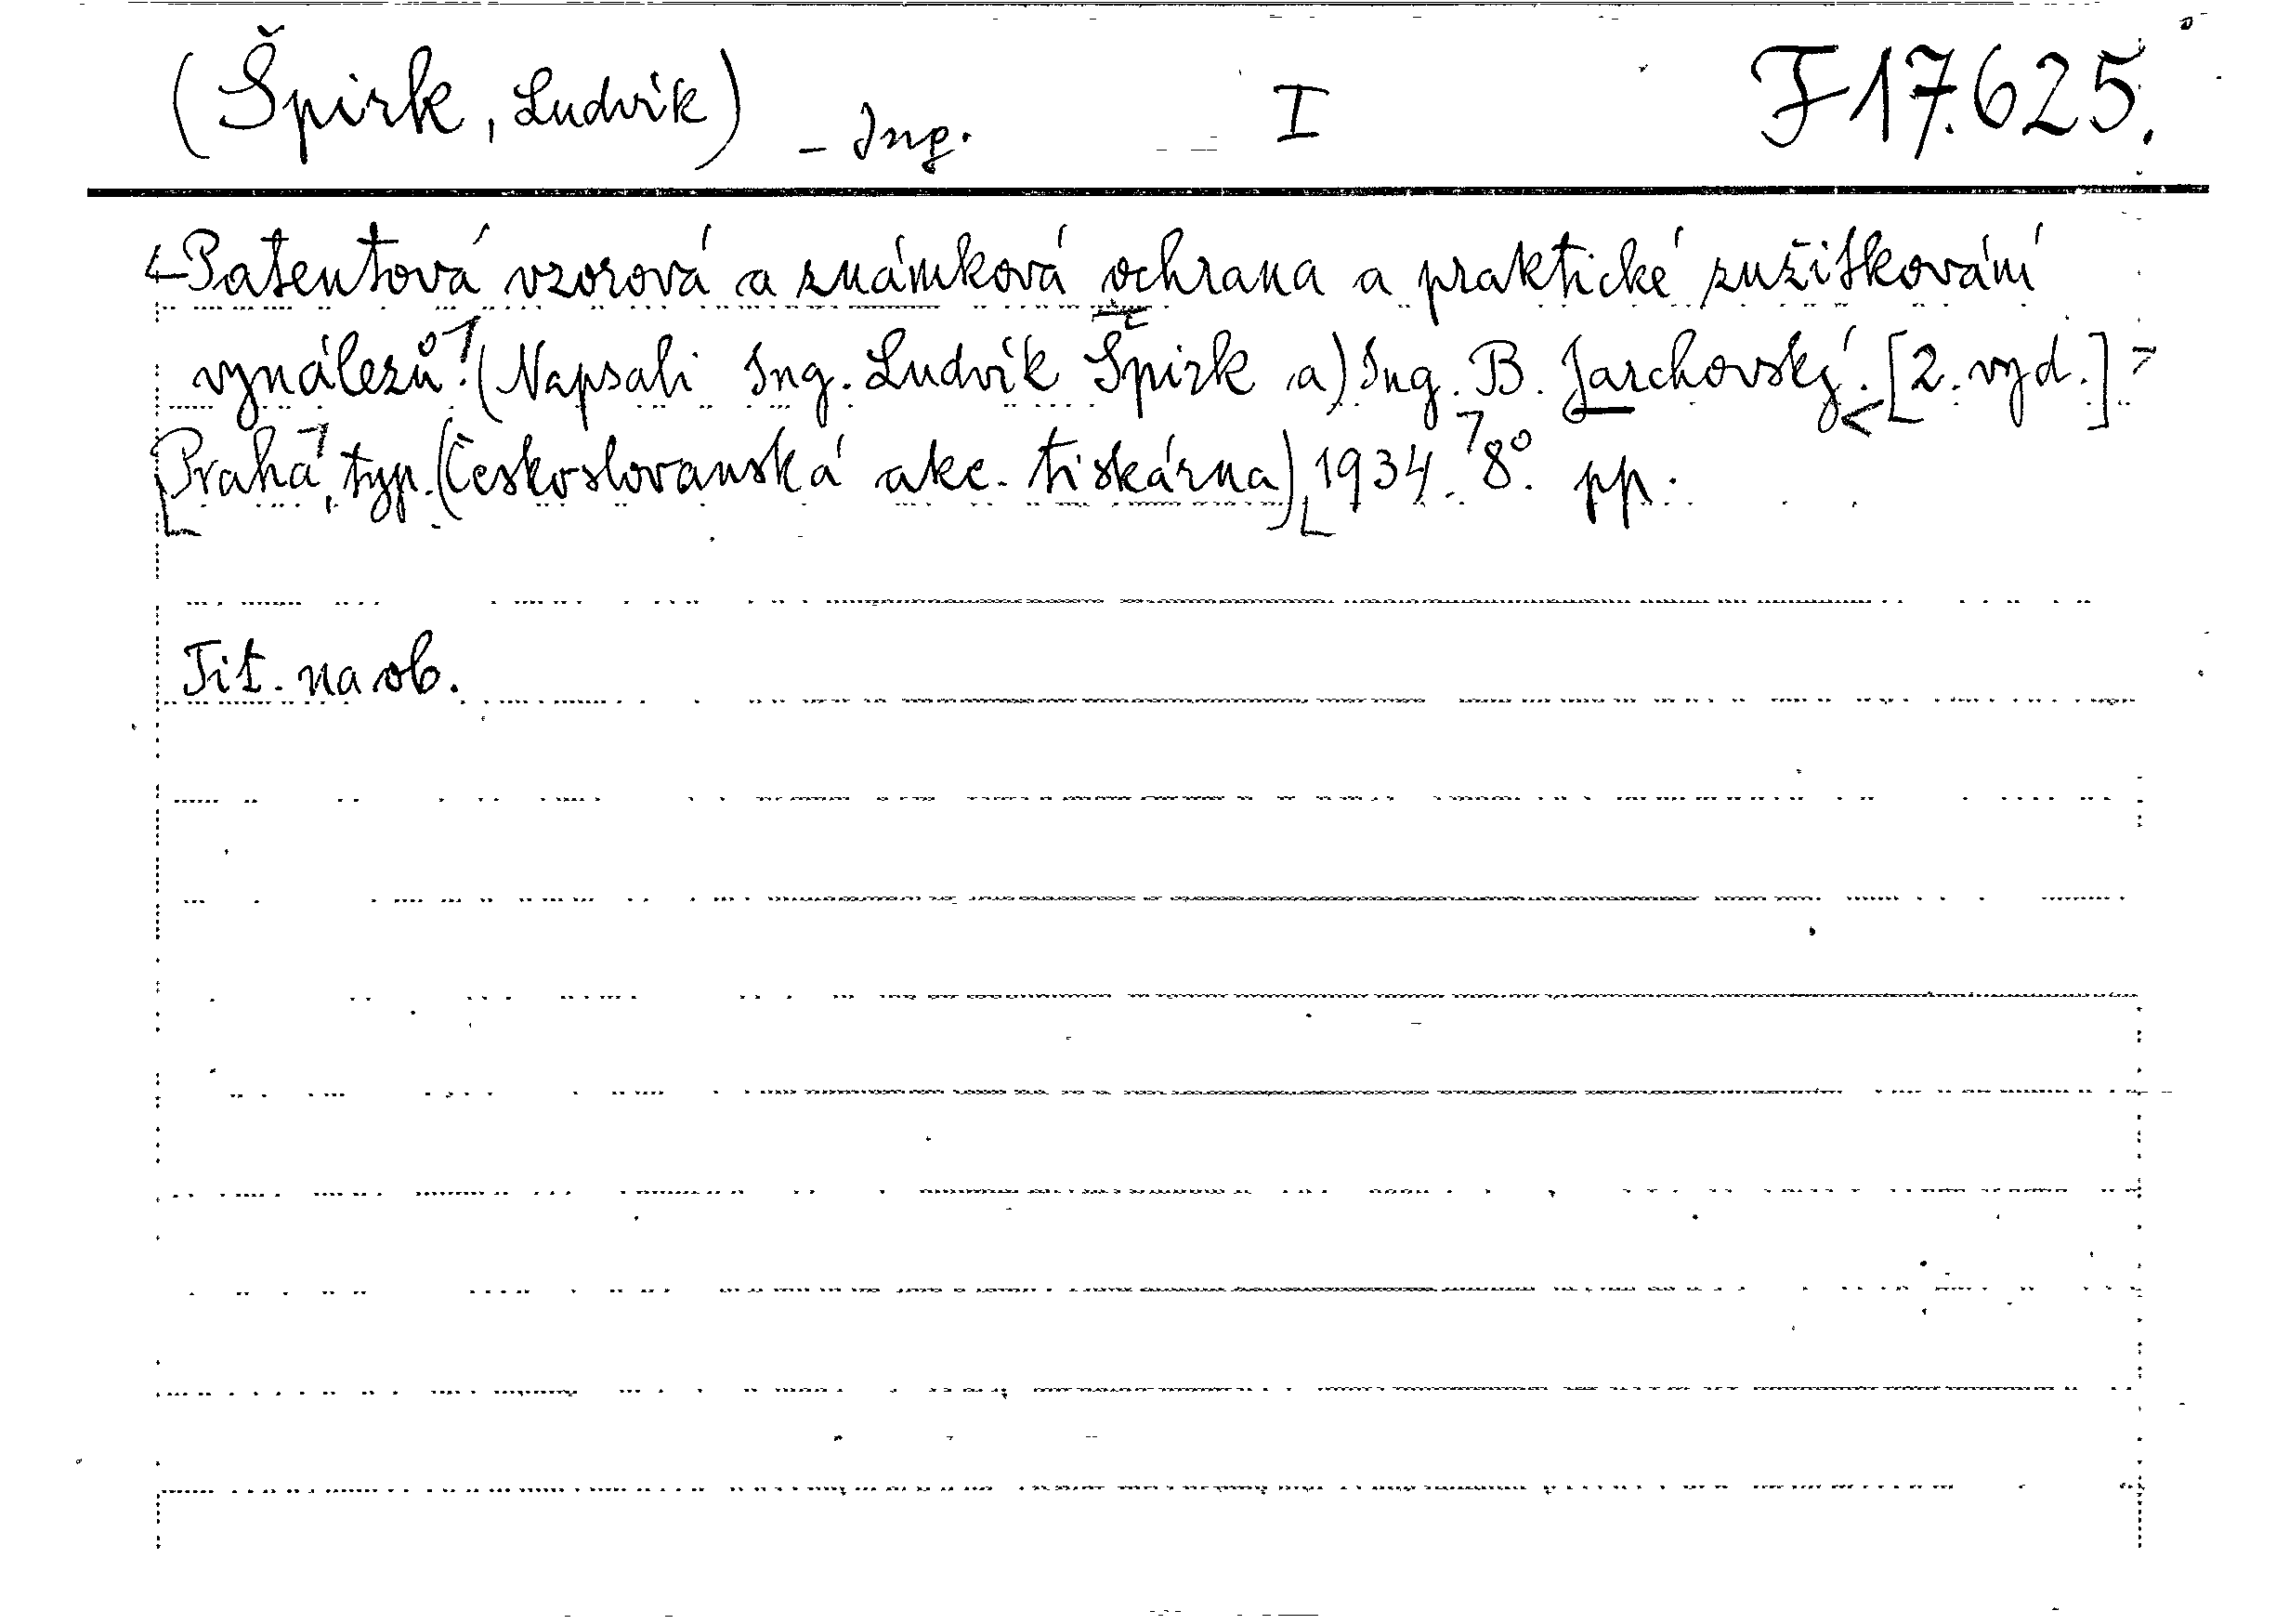 (Špirk, Ludvík) - Ing. I F 17.625.
Patentová vzorová a známková ochrana a praktické zužitkování
vynálezů. (Napsali Ing. Ludvík Špirk a) Ing. B. Jarchovský. [2. vyd.]
Praha, typ. (Českoslovanská akc. tiskárna) 1934. 8°. pp.
Tit. na ob.